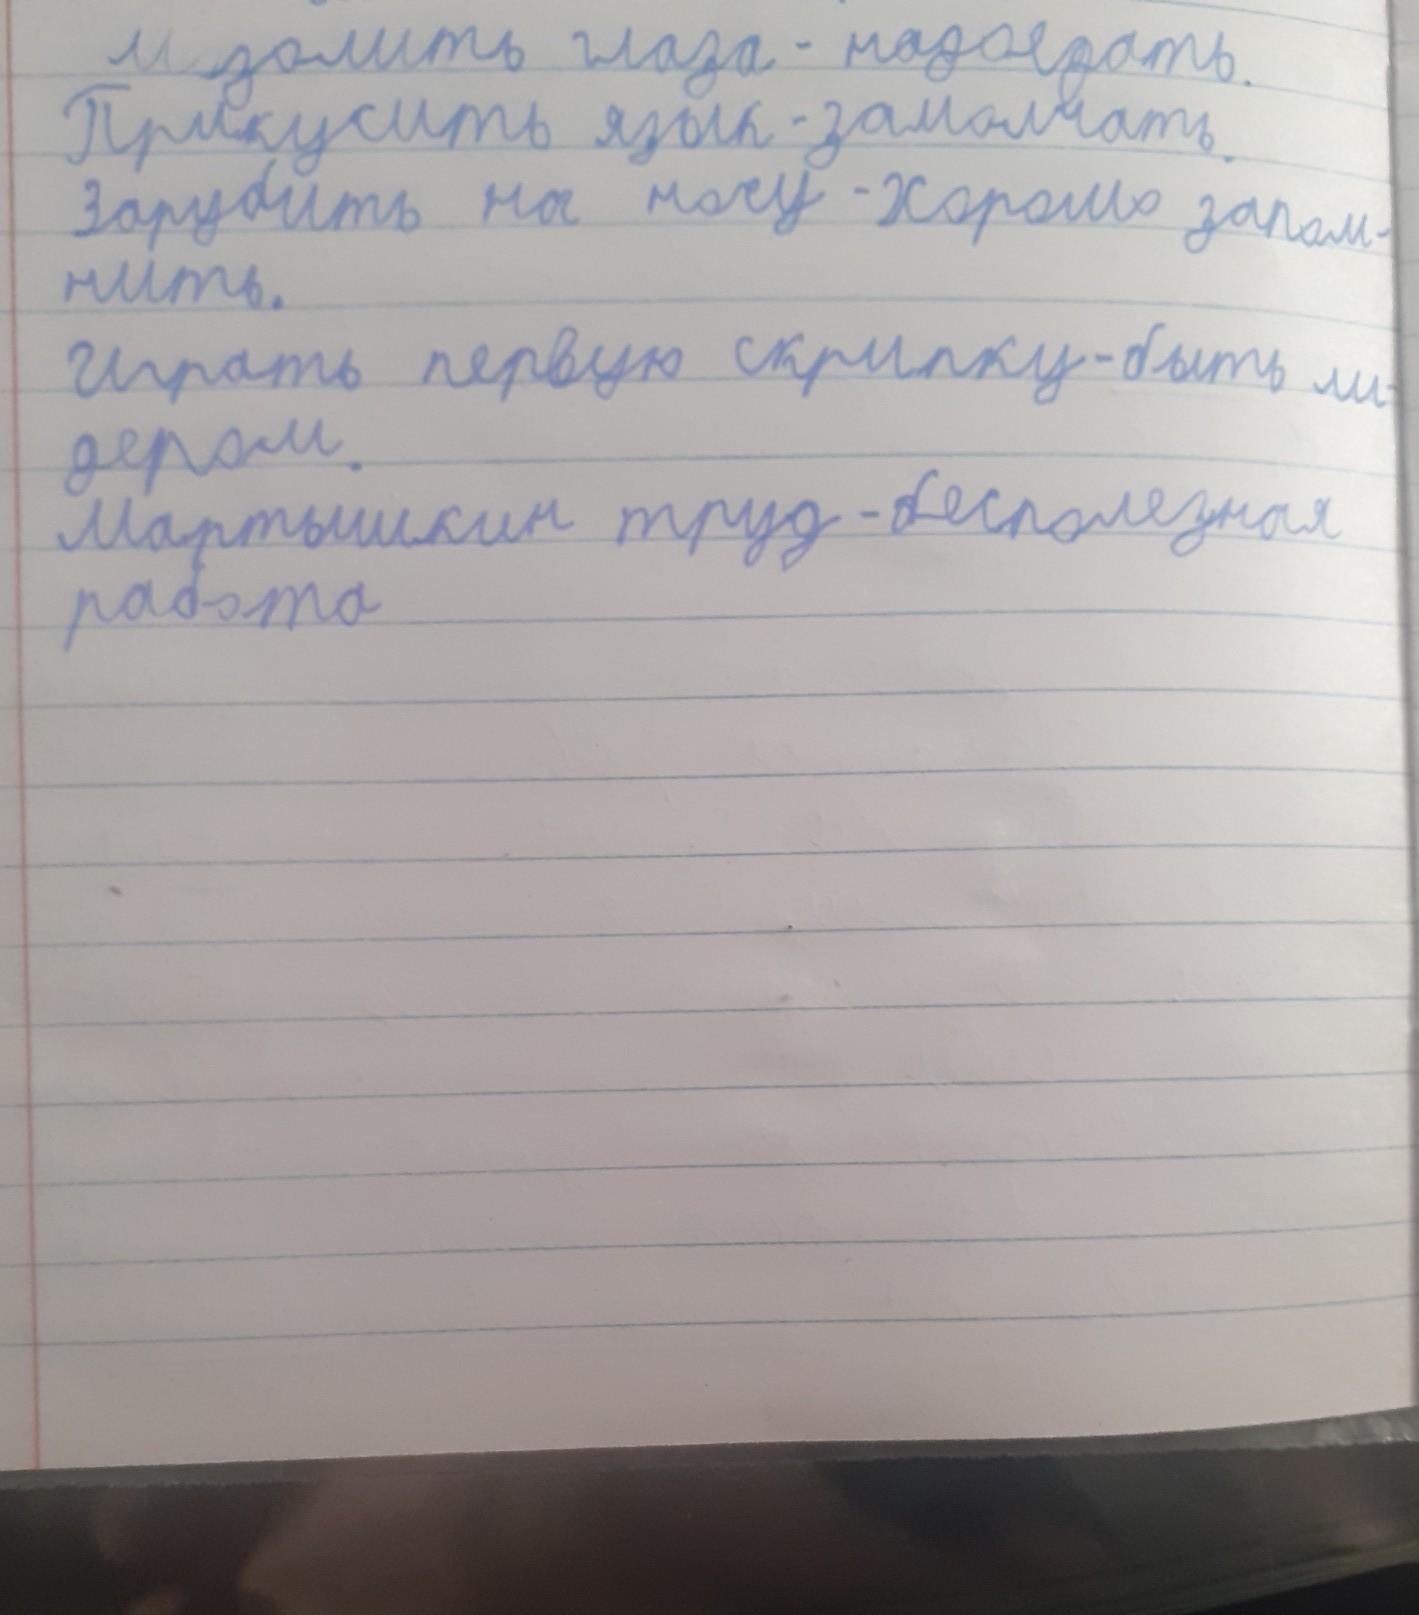 Мозолить глаза - надоедать.
Прикусить язык - замолчать.
Зарубить на носу - Хорошо запом-
нить.
Играть первую скрипку - быть ли-
дером.
Мартышкин труд - бесполезная
работа